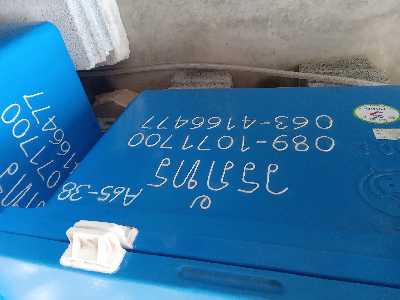 วรภัทร
A65-38
089-1071700
063-4166477
1071700
4166477